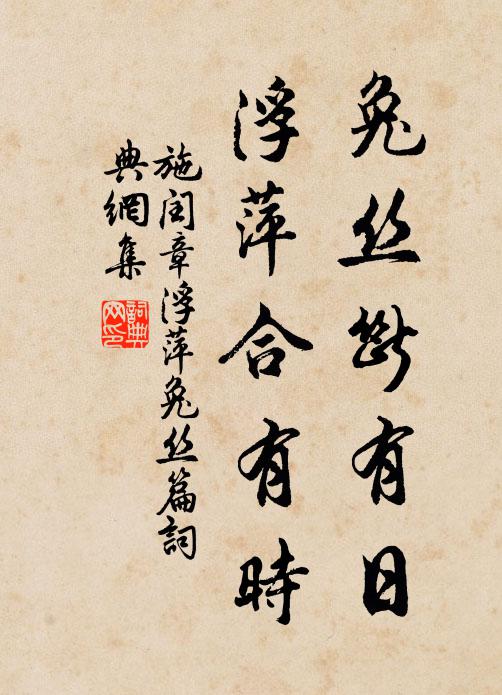 兔丝断有日
浮萍合有時
施闰章浮萍兔丝篇詞
典網集
詞典
网印